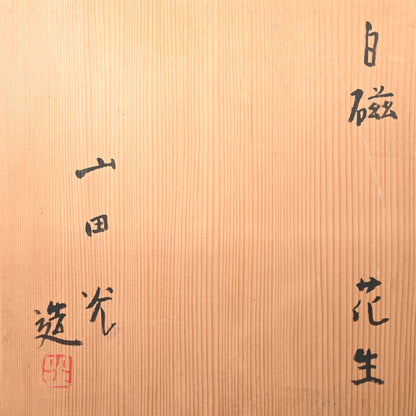 白磁
花生
山田光
造